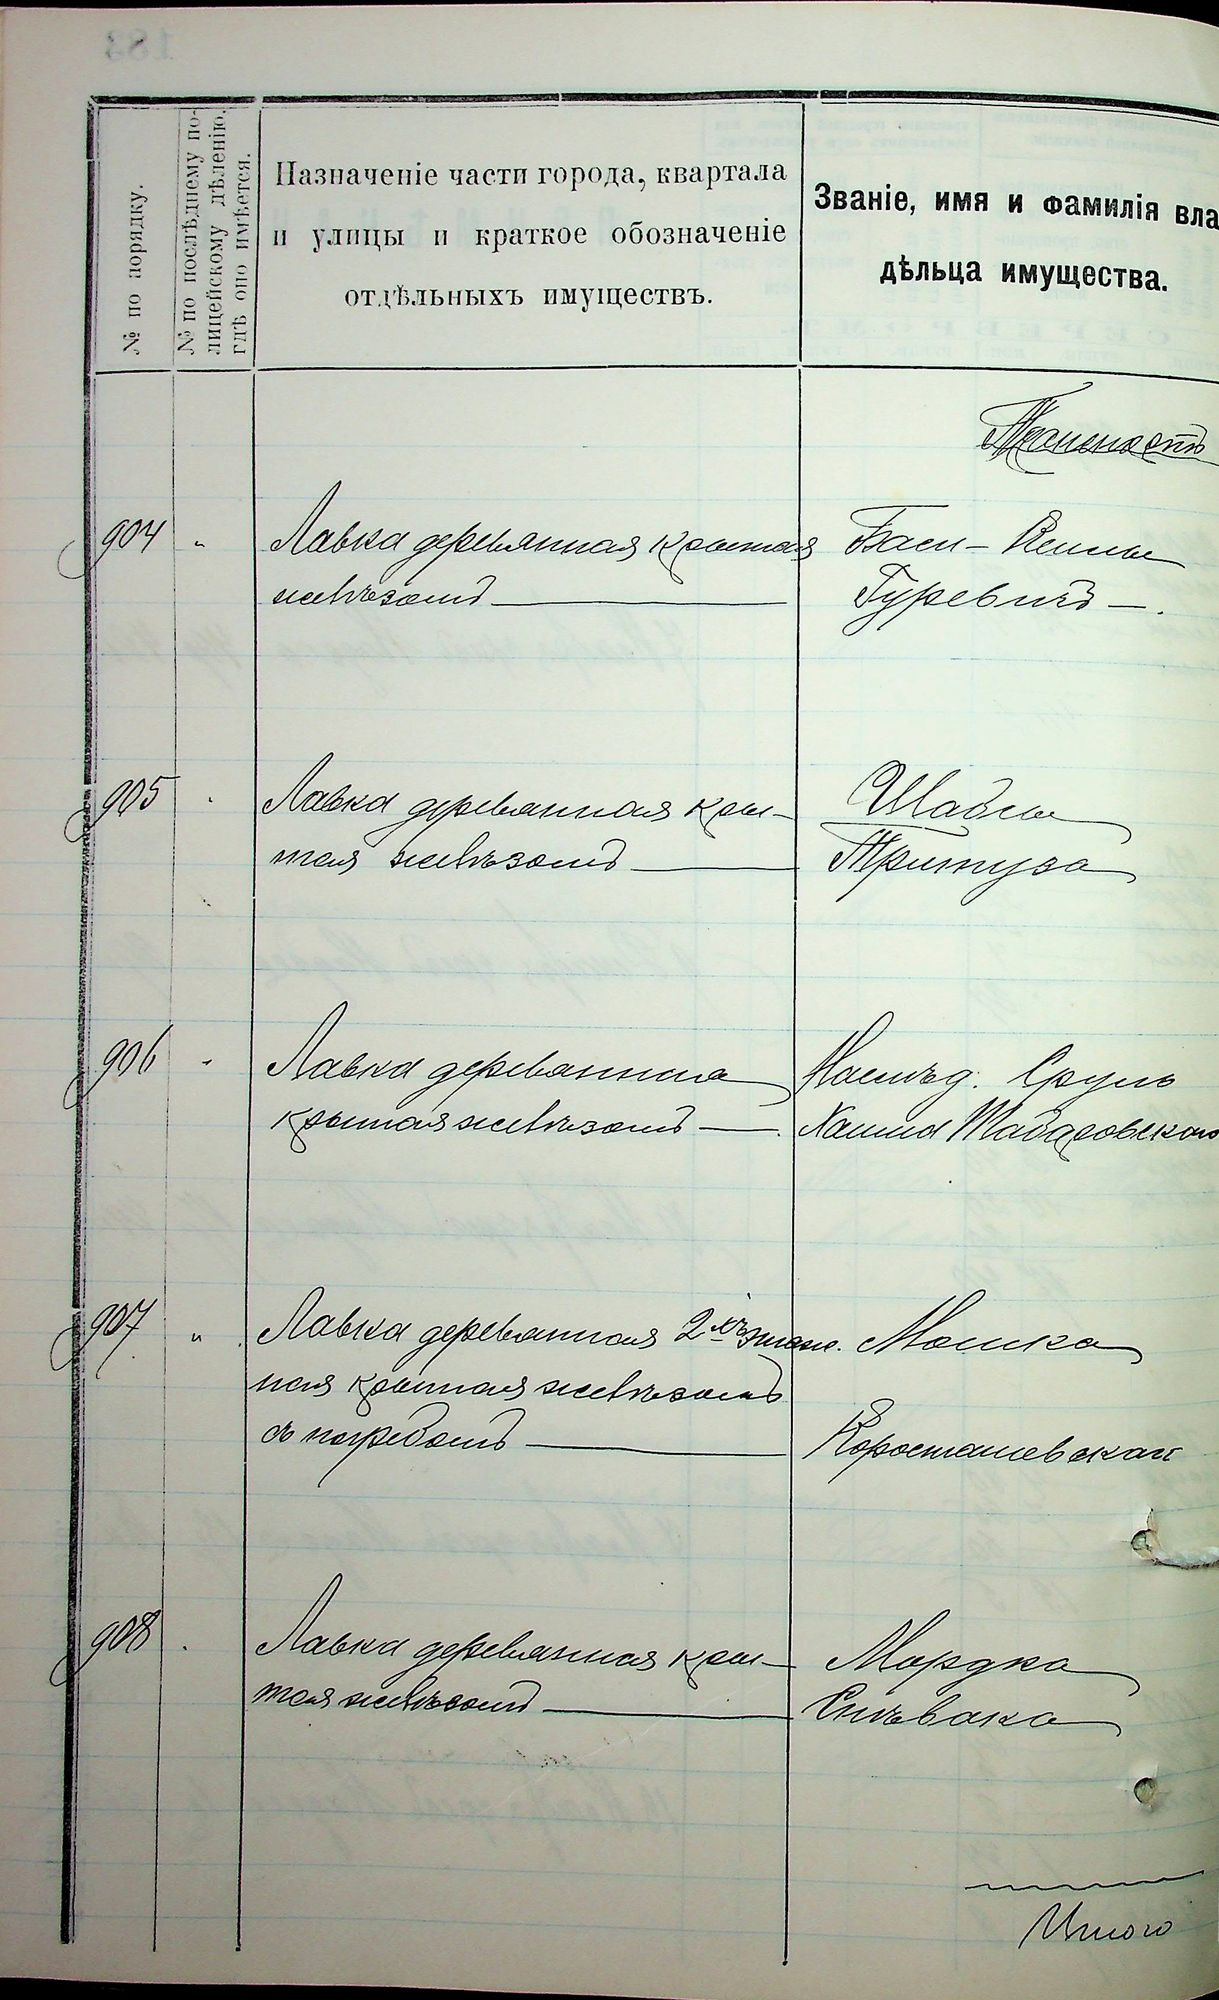 № по порядку.
№ по послѣднему по-
лицейскому дѣленію,
гдѣ оно имѣется.
Назначеніе части города, квартала
и улицы и краткое обозначеніе
отдѣльныхъ имуществъ.
Званіе, имя и фамилія вла
дѣльца имущества.
904 " Лавка деревянная крытая
желѣзомъ —
Бася-Вешля
Гуревичъ —.
905 Лавка деревянная кры-
тая желѣзомъ —
Шабсы
Тритуза
906 " Лавка деревянная
крытая желѣзомъ —.
Наслѣд. Сруль
Хаима Табаровскаго
907 " Лавка деревянная 2хъ этаж.
ная крытая желѣзомъ
съ погребомъ —
Мошка
Коростышевскаго
908 Лавка деревянная кры-
тая желѣзомъ —
Мордка
Спѣвака
Итого